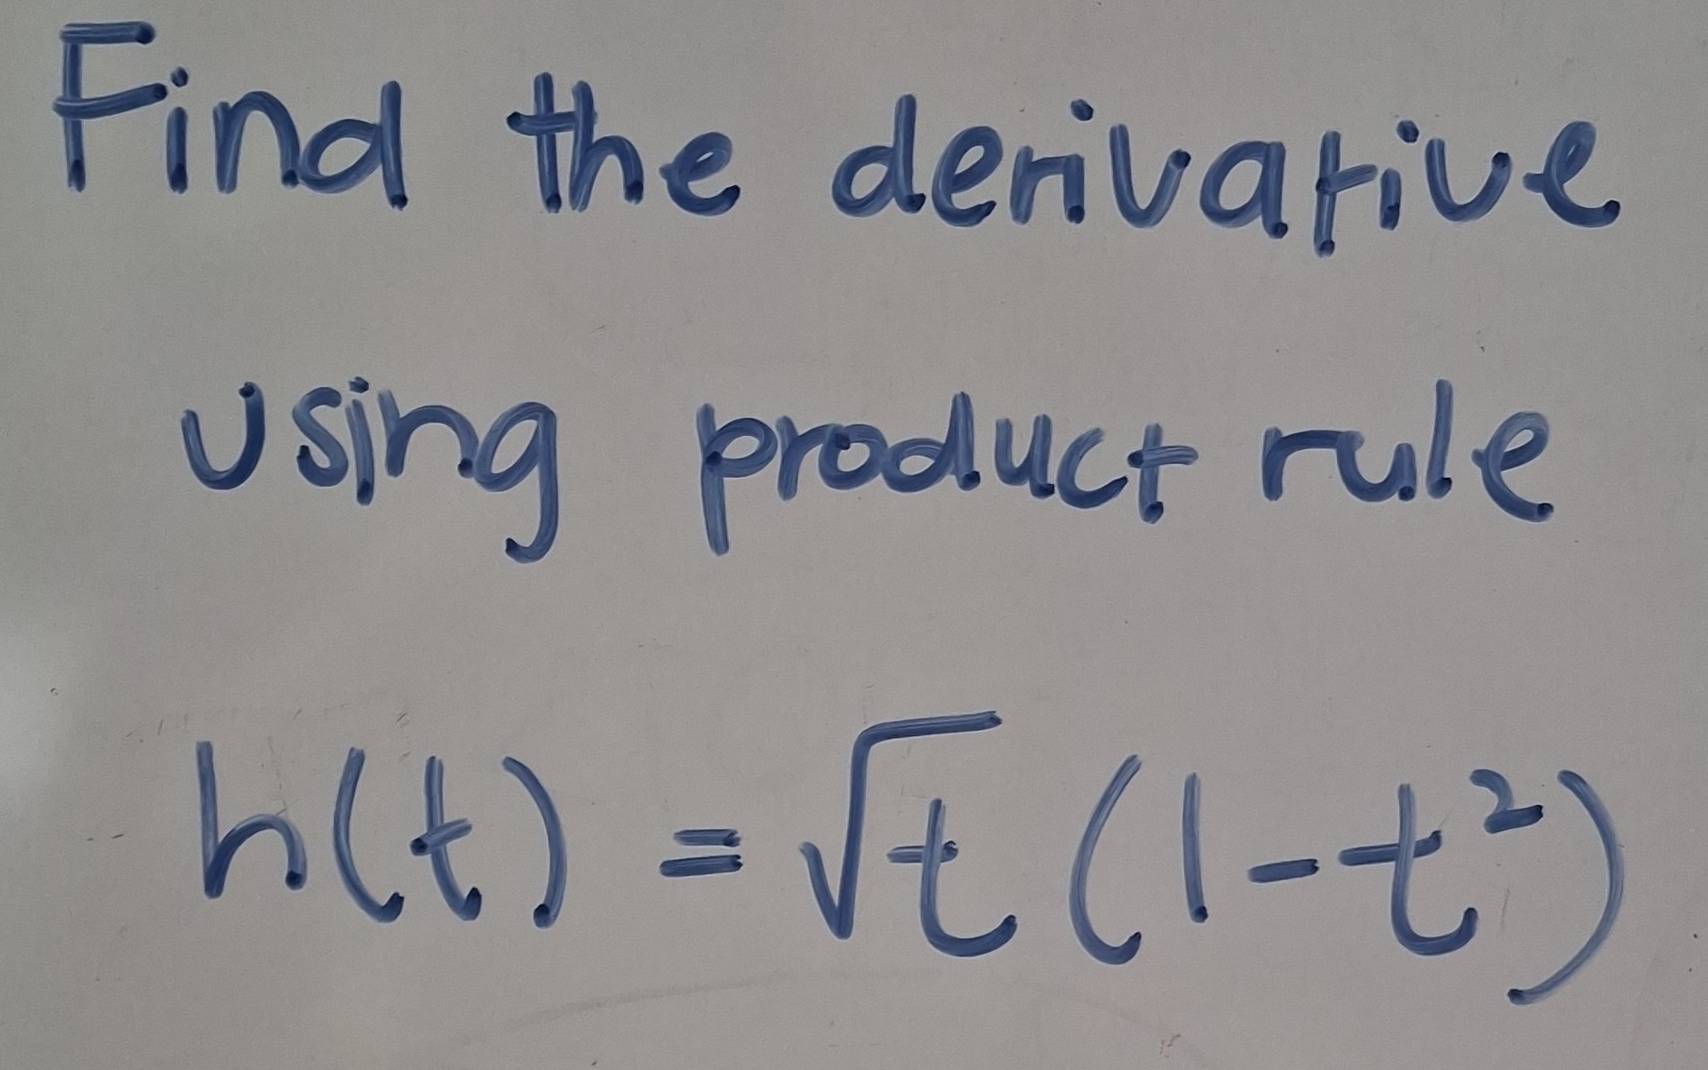 Find the derivative
using product rule
h(t) = √t (1-t²)